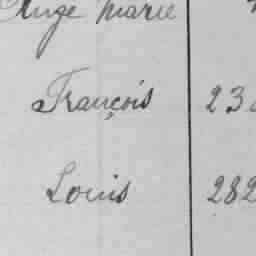 Ange Marie
François 23
Louis 282